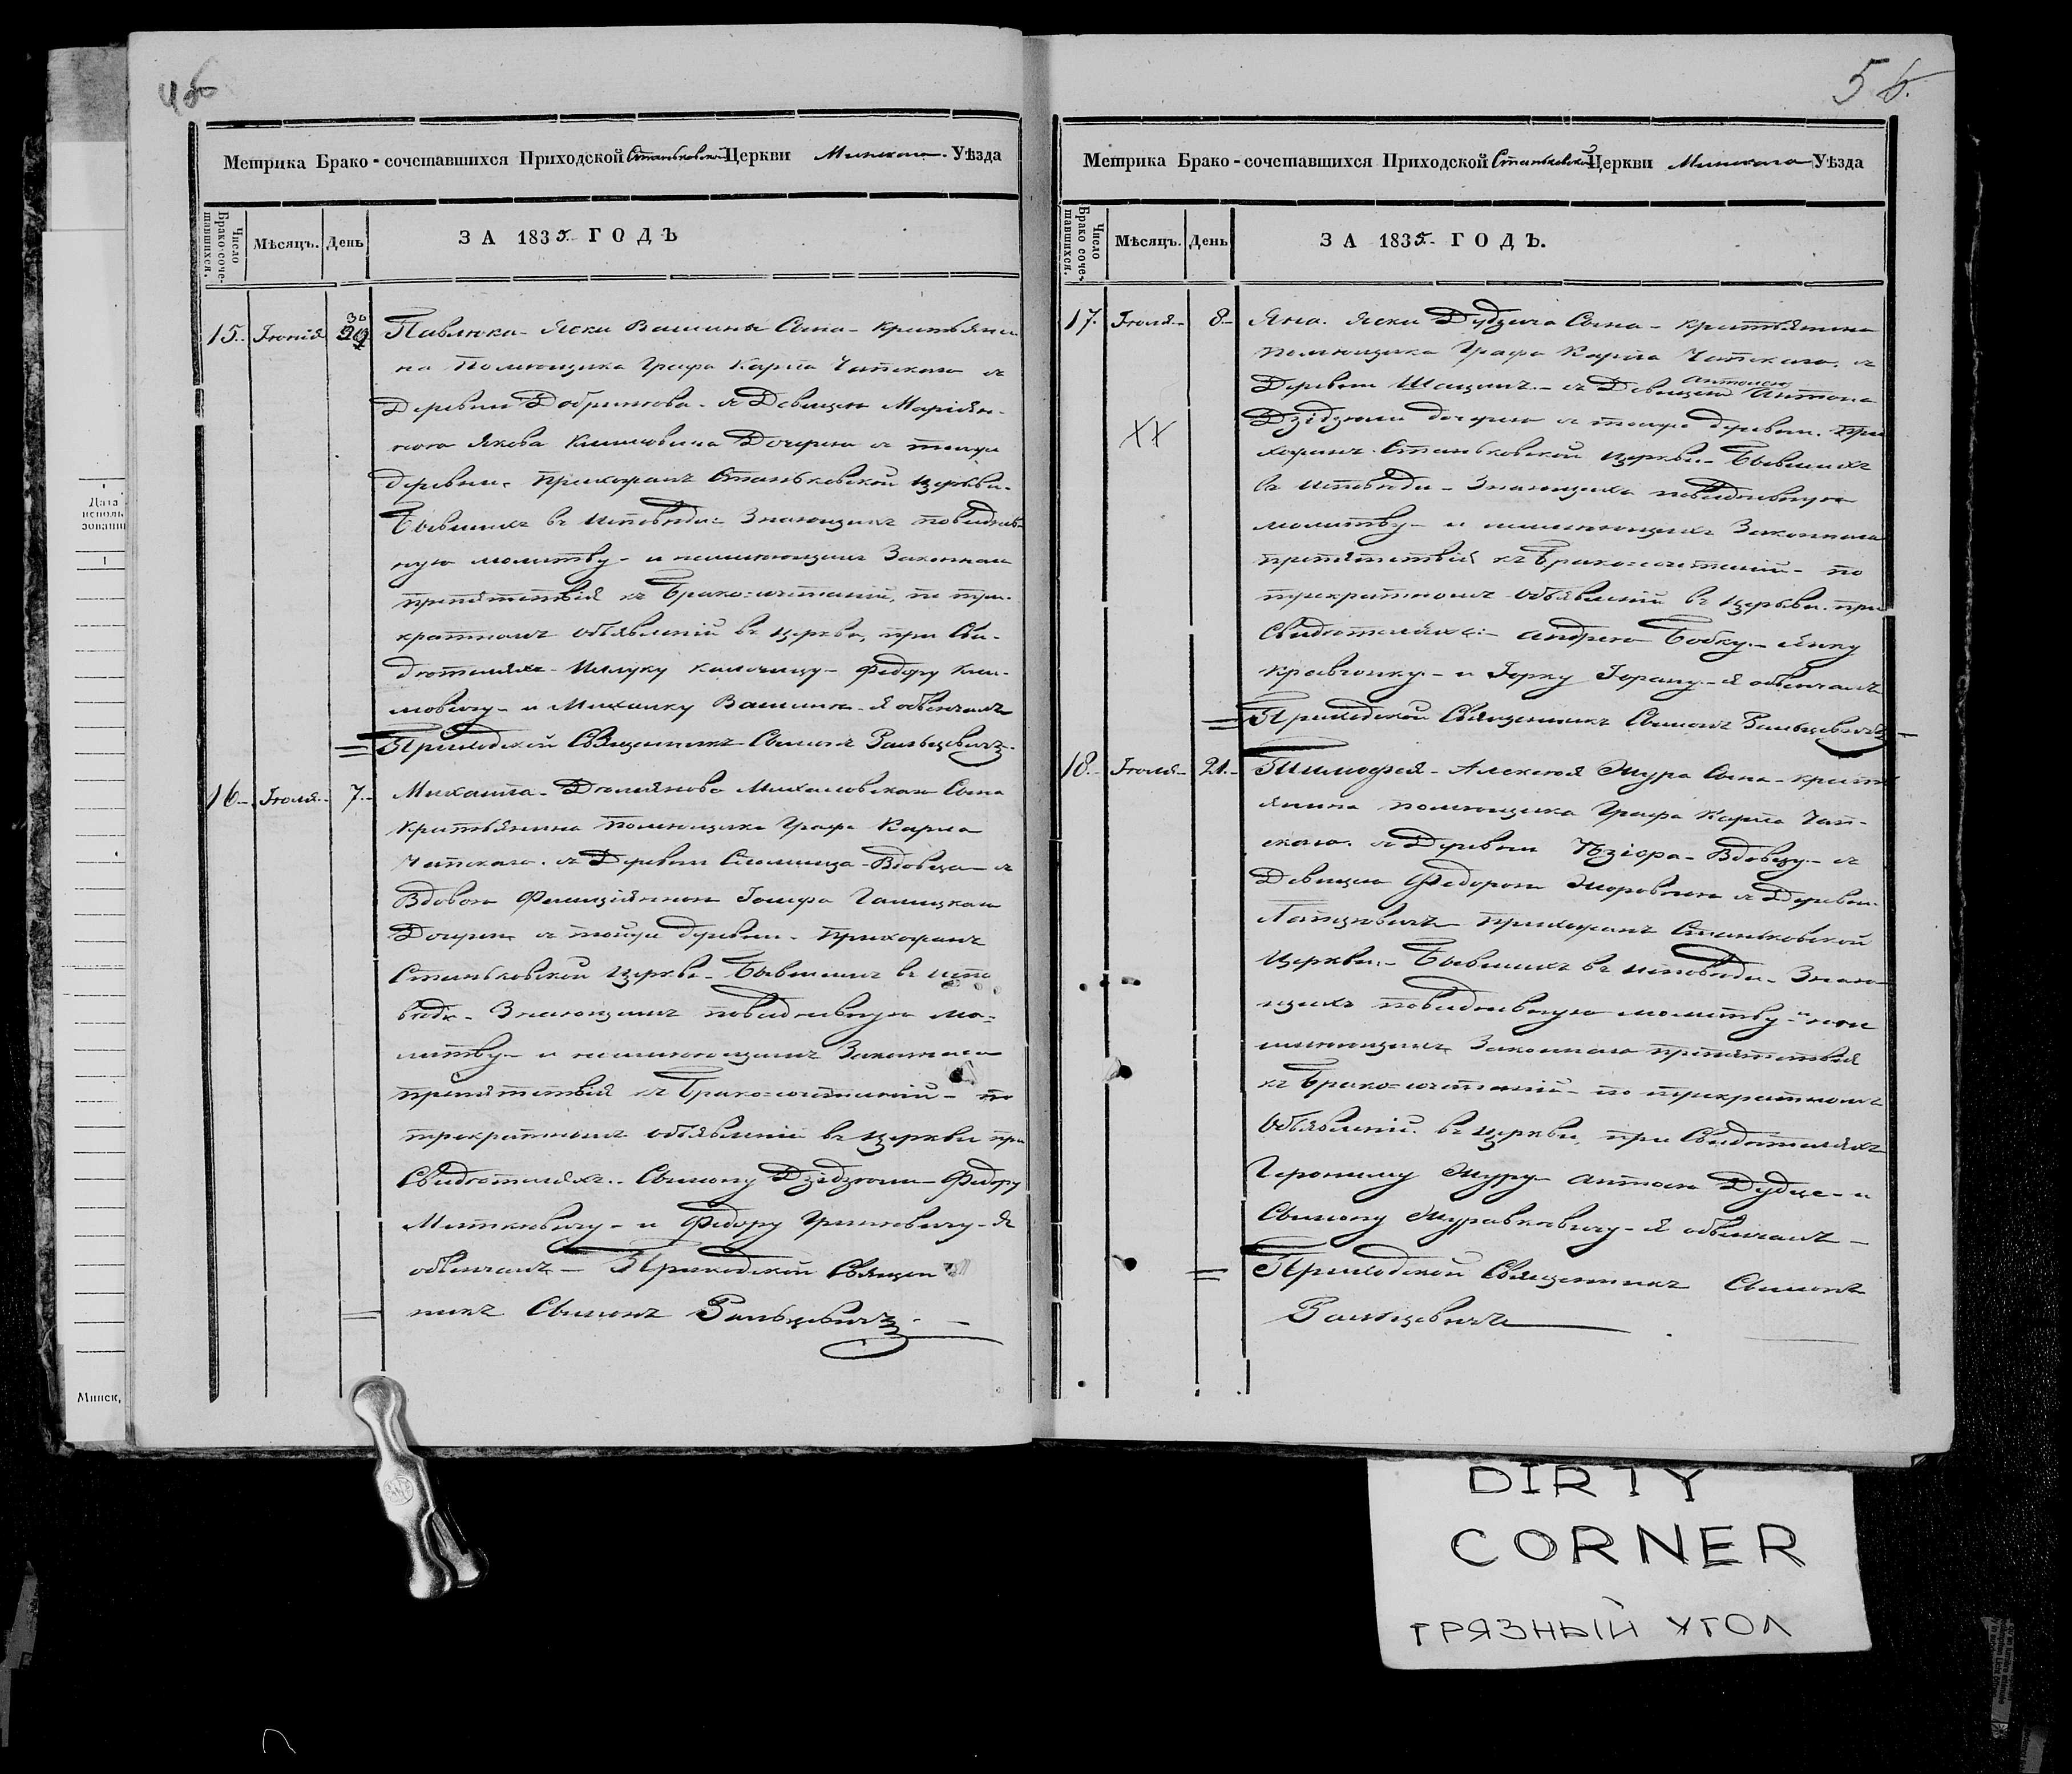 46
Метрика Брако-сочетавшихся Приходской Станьковской Церкви Минского Уѣзда
Число Брако-соче-тавшихся.
Мѣсяцъ.
День
ЗА 1835. ГОДЪ
15. Іюнія 30
Павлюка Яски Вашины Сына крестьяни
на помѣщика Графа Карла Чапскаго съ
Деревни Добринова съ Дѣвицею Маріян-
ною Якова Климовича Дочерью съ тоейже
деревни прихожанъ Станьковской Церкви
Бывшихъ въ исповѣди Знающихъ повседнев-
ную молитву и неимѣющихъ Законнаго
препятствія къ Брако=сочетаніи, по трех-
кратномъ объявленіи въ Церкви, при Сви-
дѣтеляхъ Федору Кли-
мовичу и Михалку Вашины Я обвенчалъ
Приходской Священникъ Сымонъ Ральцевичъ
16 Іюля 7
Михаила Дземянова Михаловскаго Сына
Крестьянина помѣщика Графа Карла
Чапскаго съ Деревни Вдовца съ
Вдовою Фелиціянною Іосифа Галицкаго
Дочерью съ тойже деревни прихожанъ
Станьковской Церкви Бывшихъ въ испо
вѣди Знающихъ повседневную мо=
литву и неимѣющихъ Законнаго
препятствія къ Брако=сочетаніи по
трекратномъ объявленіи въ Церкви при
Свидѣтеляхъ Сымону Дзѣдзюли Федору
Миткевичу и Федору Гриневичу Я
обвенчалъ Приходской Священ
никъ Сымонъ Ральцевичъ
5
Метрика Брако-сочетавшихся Приходской Станьковской Церкви Минскаго Уѣзда
Число Брако соче-тавшихся.
Мѣсяцъ.
День
ЗА 1835. ГОДЪ.
17. Іюля 8
Яна Яски Дудзича Сына крестьянина
помѣщика Графа Карла Чапскаго съ
Деревни съ Дѣвицею Антонею Антона
Дзѣдзюли дочерью съ тоейже деревни при
хожанъ Станьковской Церкви Бывшихъ
въ исповѣди Знающихъ повседневную
молитву и неимѣющихъ Законнаго
препятствія къ Брако=сочетаніи по
трекратномъ объявленіи въ Церкви при
Свидѣтеляхъ: Андрею Бобку Янку
Кравчонку и Юрку Я обвенчалъ
Приходской Священникъ Сымонъ Ральцевичъ
XX
18. Іюля 21.
Тимофея Алексея Жура Сына крест
янина помѣщика Графа Карла Чап-
скаго съ Деревни Вдовцу съ
Дѣвицею Федорою съ Деревни
прихожанъ Станьковской
Церкви Бывшихъ въ исповѣди Знаю
щихъ повседневную молитву и неи
мѣющихъ Законнаго препятствія
къ Брако=сочетаніи по трекратномъ
Объявленіи въ Церкви, при Свидѣтеляхъ
Герониму Журу Антону и
Сымону Журавковичу Я обвенчалъ
Приходской Священникъ Сымонъ
Ральцевичъ
Дата
исполь
зования
1
Минск,
DIRTY
CORNER
ГРЯЗНЫЙ УГОЛ